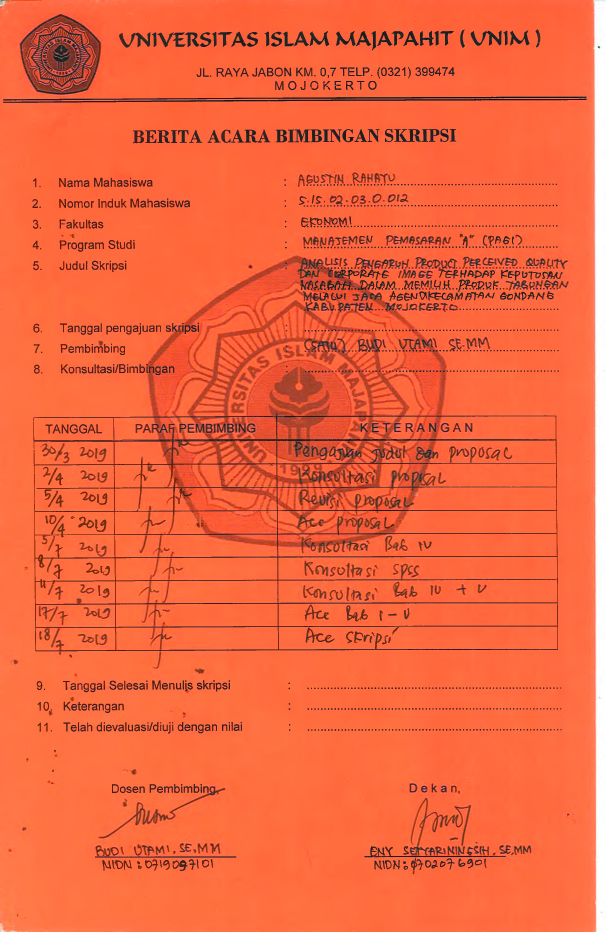 UNIVERSITAS ISLAM MAJAPAHIT ( UNIM )
JL. RAYA JABON KM. 0,7 TELP. (0321) 399474
MOJOKERTO
BERITA ACARA BIMBINGAN SKRIPSI
1. Nama Mahasiswa : AGUSTIN RAHAYU
2. Nomor Induk Mahasiswa : 5.15.02.03.0.012
3. Fakultas : EKONOMI
4. Program Studi : MANAJEMEN PEMASARAN "A" (PAGI)
5. Judul Skripsi : ANALISIS PENGARUH PRODUCT PERCEIVED QUALITY
DAN CORPORATE IMAGE TERHADAP KEPUTUSAN
NASABAH DALAM MEMILIH PRODUK TABUNGAN
MELALUI JASA AGENDIKECAMATAN GONDANG
KABUPATEN MOJOKERTO
6. Tanggal pengajuan skripsi :
7. Pembimbing : (SATU) BUDI UTAMI SE.MM
8. Konsultasi/Bimbingan :
UNIVERSITAS ISLAM MAJAPAHIT
TANGGAL PARAF PEMBIMBING KETERANGAN
30/3 2019 Pengajuan judul dan proposal
2/4 2019 Konsultasi proposal
5/4 2019 Revisi proposal
10/4 2019 Acc proposal
5/7 2019 Konsultasi Bab IV
8/7 2019 Konsultasi SPSS
11/7 2019 Konsultasi Bab IV + V
17/7 2019 Acc Bab I - V
18/7 2019 Acc Skripsi
9. Tanggal Selesai Menulis skripsi :
10. Keterangan :
11. Telah dievaluasi/diuji dengan nilai :
Dosen Pembimbing, Dekan,
BUDI UTAMI, SE, MM ENY SETYARININGSIH, SE, MM
NIDN : 0719097101 NIDN : 0702076901